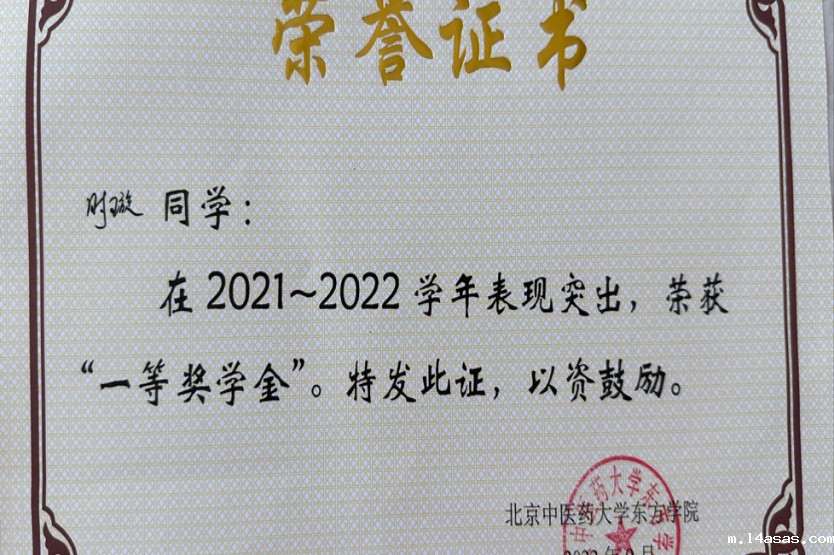 荣誉证书
时璇 同学：
在2021~2022学年表现突出，荣获
“一等奖学金”。特发此证，以资鼓励。
北京中医药大学东方学院
m.14asas.com